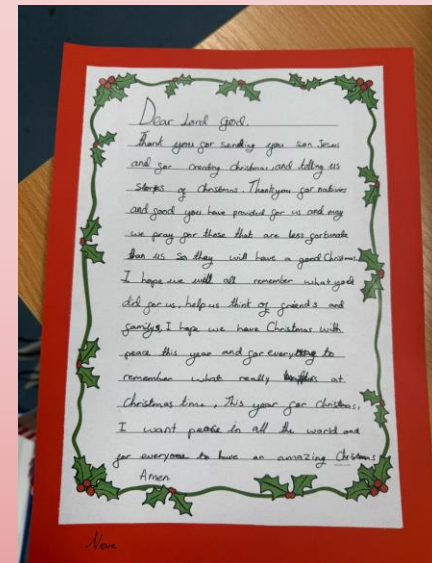 Dear Lord God.
Thank you for sending you son Jesus
and for creating christmas, and telling us
stories of Christmas. Thankyou for natives
and good you have provided for us and may
we pray for those that are less fortunate
than us so they will have a good Christmas.
I hope we will all remember what
did for us, help us think of friends and
family, I hope we have Christmas with
peace this year and for everything to
remember what really at
Christmas time, This year for christmas,
I want peace in all the world and
for everyone to have an amazing Christmas
Amen